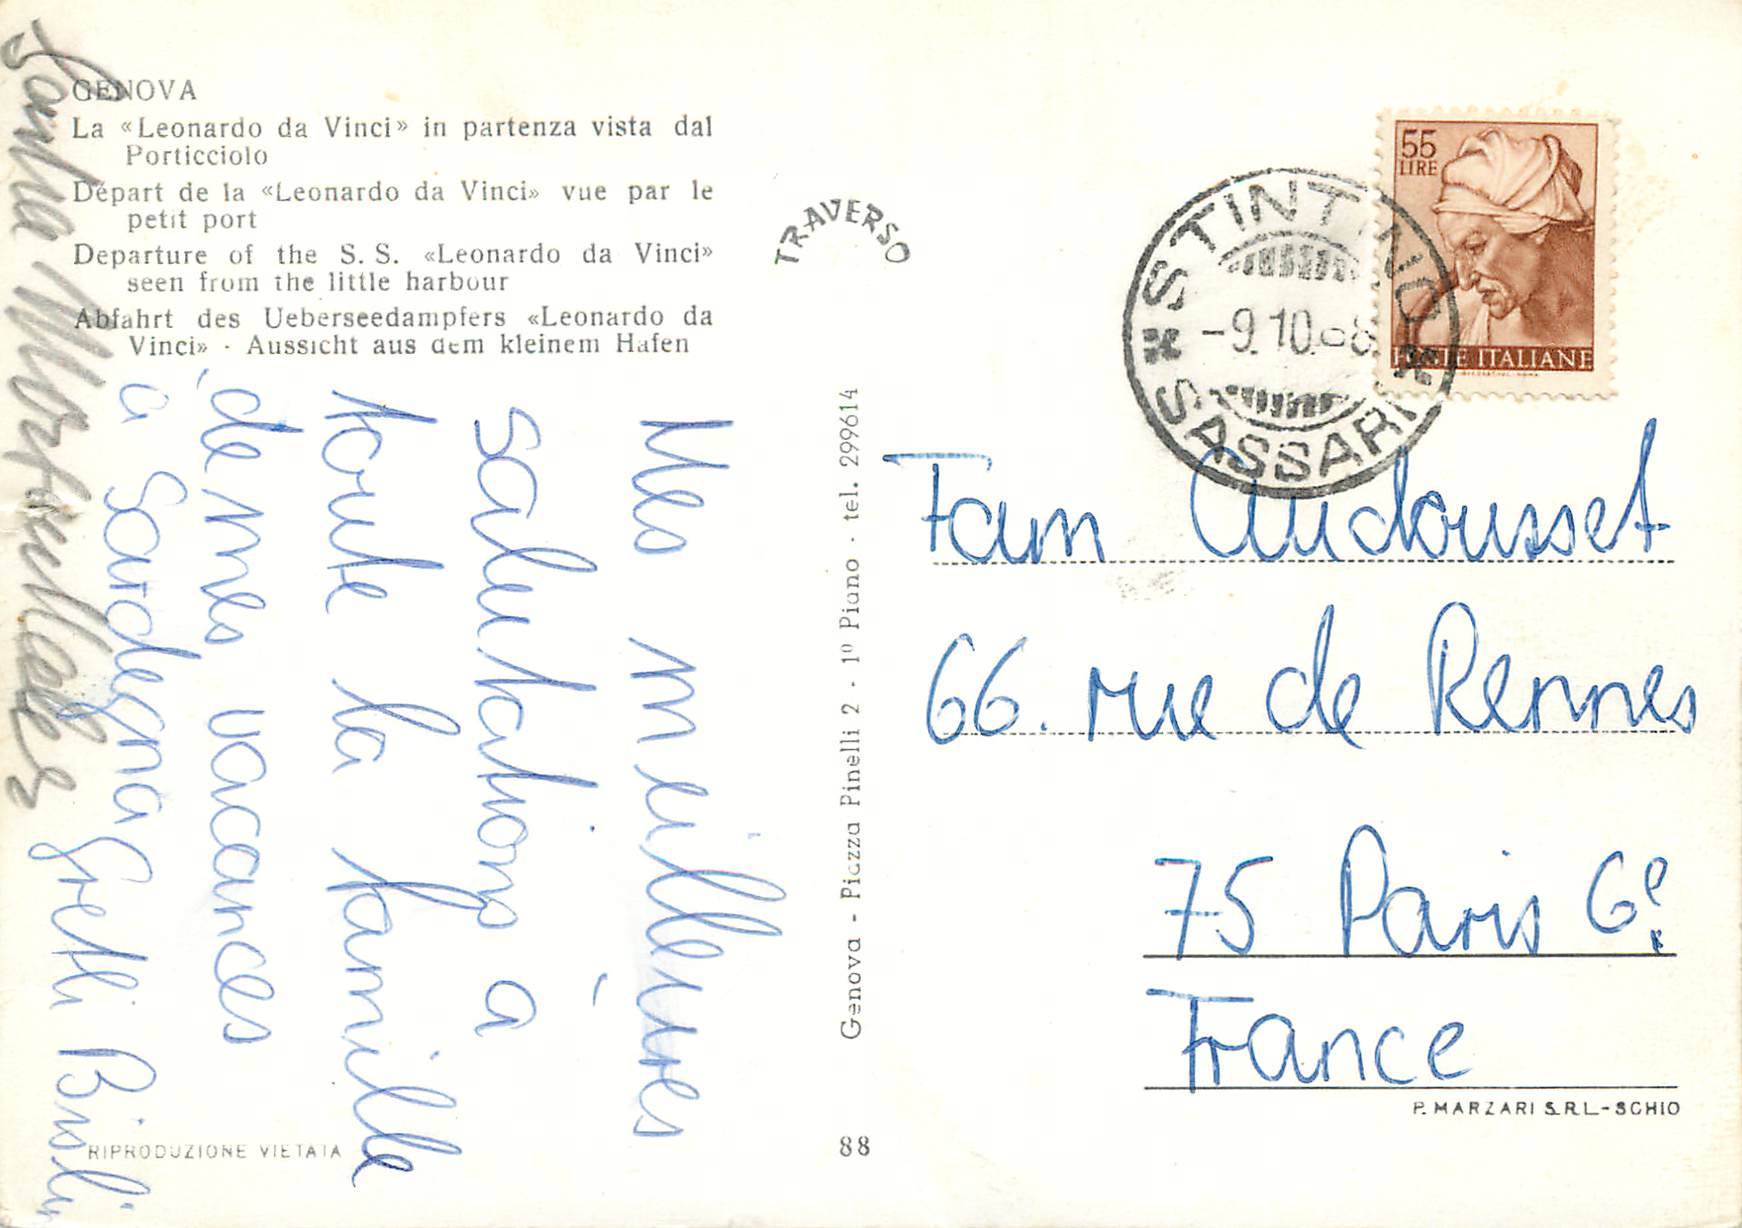 GENOVA
La «Leonardo da Vinci» in partenza vista dal
Porticciolo
Départ de la «Leonardo da Vinci» vue par le
petit port
Departure of the S. S. «Leonardo da Vinci»
seen from the little harbour
Abfahrt des Ueberseedampfers «Leonardo da
Vinci» - Aussicht aus dem kleinem Hafen
Mes meilleures
salutations à
toute la famille
de mes vacances
à Sardegna
Gretli
TRAVERSO
Genova - Piazza Pinelli 2 - 1º Piano - tel. 299614
RIPRODUZIONE VIETATA
88
STINTINO
-9.10.68
SASSARI
55
LIRE
POSTE ITALIANE
Fam Audousset
66. rue de Rennes
75 Paris 6e
France
P. MARZARI S.R.L. - SCHIO